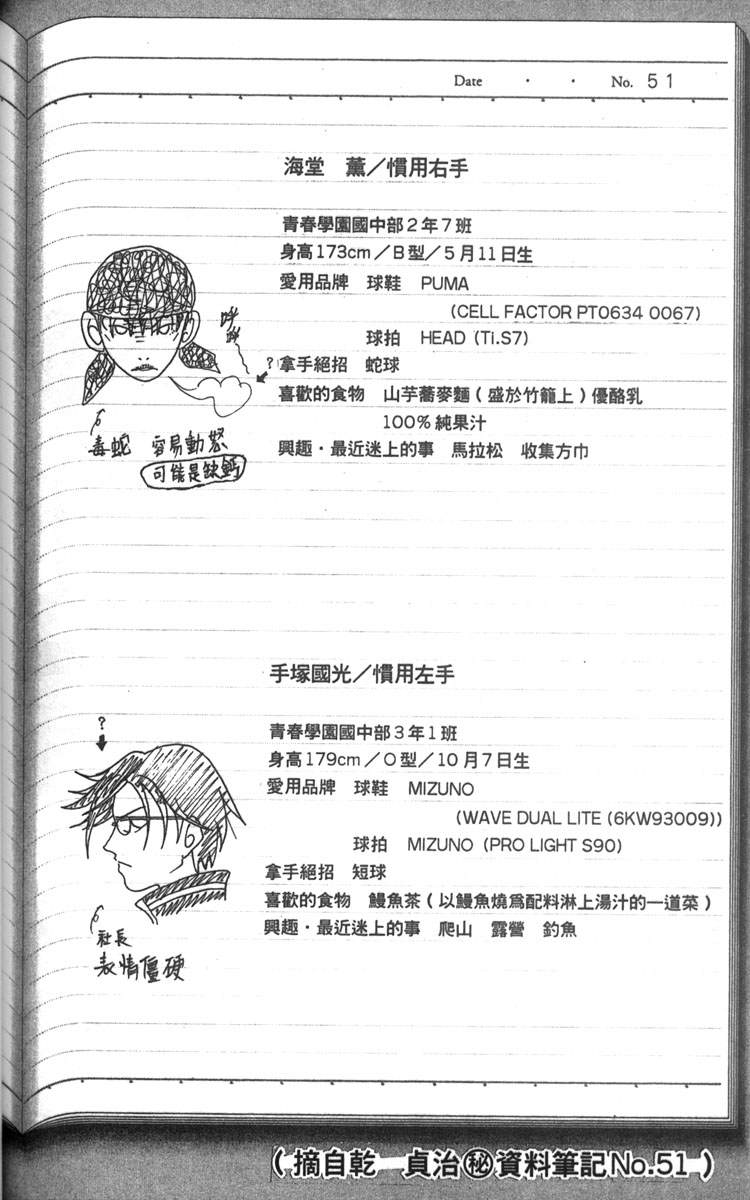 Date ・ ・ No. 51
海堂 薫／慣用右手
青春學園國中部2年7班
身高173cm／B型／5月11日生
愛用品牌 球鞋 PUMA
(CELL FACTOR PT0634 0067)
球拍 HEAD (Ti.S7)
拿手絕招 蛇球
喜歡的食物 山芋蕎麥麵(盛於竹籠上)優酪乳
100%純果汁
興趣・最近迷上的事 馬拉松 收集方巾
?
毒蛇 容易動怒
可能是缺鈣
手塚國光／慣用左手
青春學園國中部3年1班
身高179cm／O型／10月7日生
愛用品牌 球鞋 MIZUNO
(WAVE DUAL LITE (6KW93009))
球拍 MIZUNO (PRO LIGHT S90)
拿手絕招 短球
喜歡的食物 鰻魚茶(以鰻魚燒爲配料淋上湯汁的一道菜)
興趣・最近迷上的事 爬山 露營 釣魚
?
社長
表情僵硬
(摘自乾 貞治㊙資料筆記No.51)